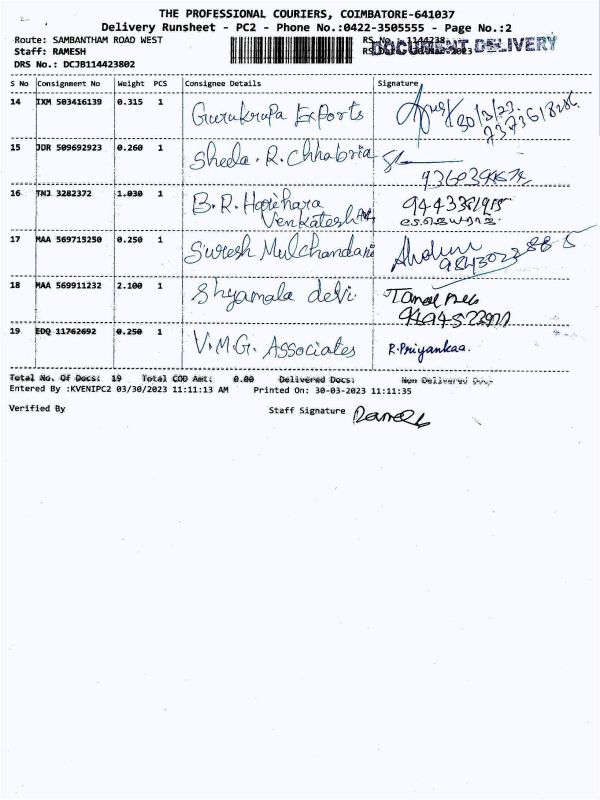 THE PROFESSIONAL COURIERS, COIMBATORE-641037
Delivery Runsheet - PC2 - Phone No.:0422-3505555 - Page No.:2
Route: SAMBANTHAM ROAD WEST
DOCUMENT DELIVERY
Staff: RAMESH
DRS No.: DCJB114423802
S No Consignment No Weight PCS Consignee Details Signature
14 IXM 503416139 0.315 1 Gurukrupa Exports 30/3/23
15 JDR 509692923 0.260 1 Sheela. R. Chhabria
16 TNJ 3282372 1.030 1 B.R. Harihara
Venkatesh
17 MAA 569715250 0.250 1 Suresh Mulchandani
18 MAA 569911232 2.100 1 Shyamala devi
19 EDQ 11762692 0.250 1 V.M.G. Associates R.Priyankaa.
Total No. Of Docs: 19 Total COD Amt: 0.00 Delivered Docs: Non Delivered Docs:
Entered By :KVENIPC2 03/30/2023 11:11:13 AM Printed On: 30-03-2023 11:11:35
Verified By Staff Signature